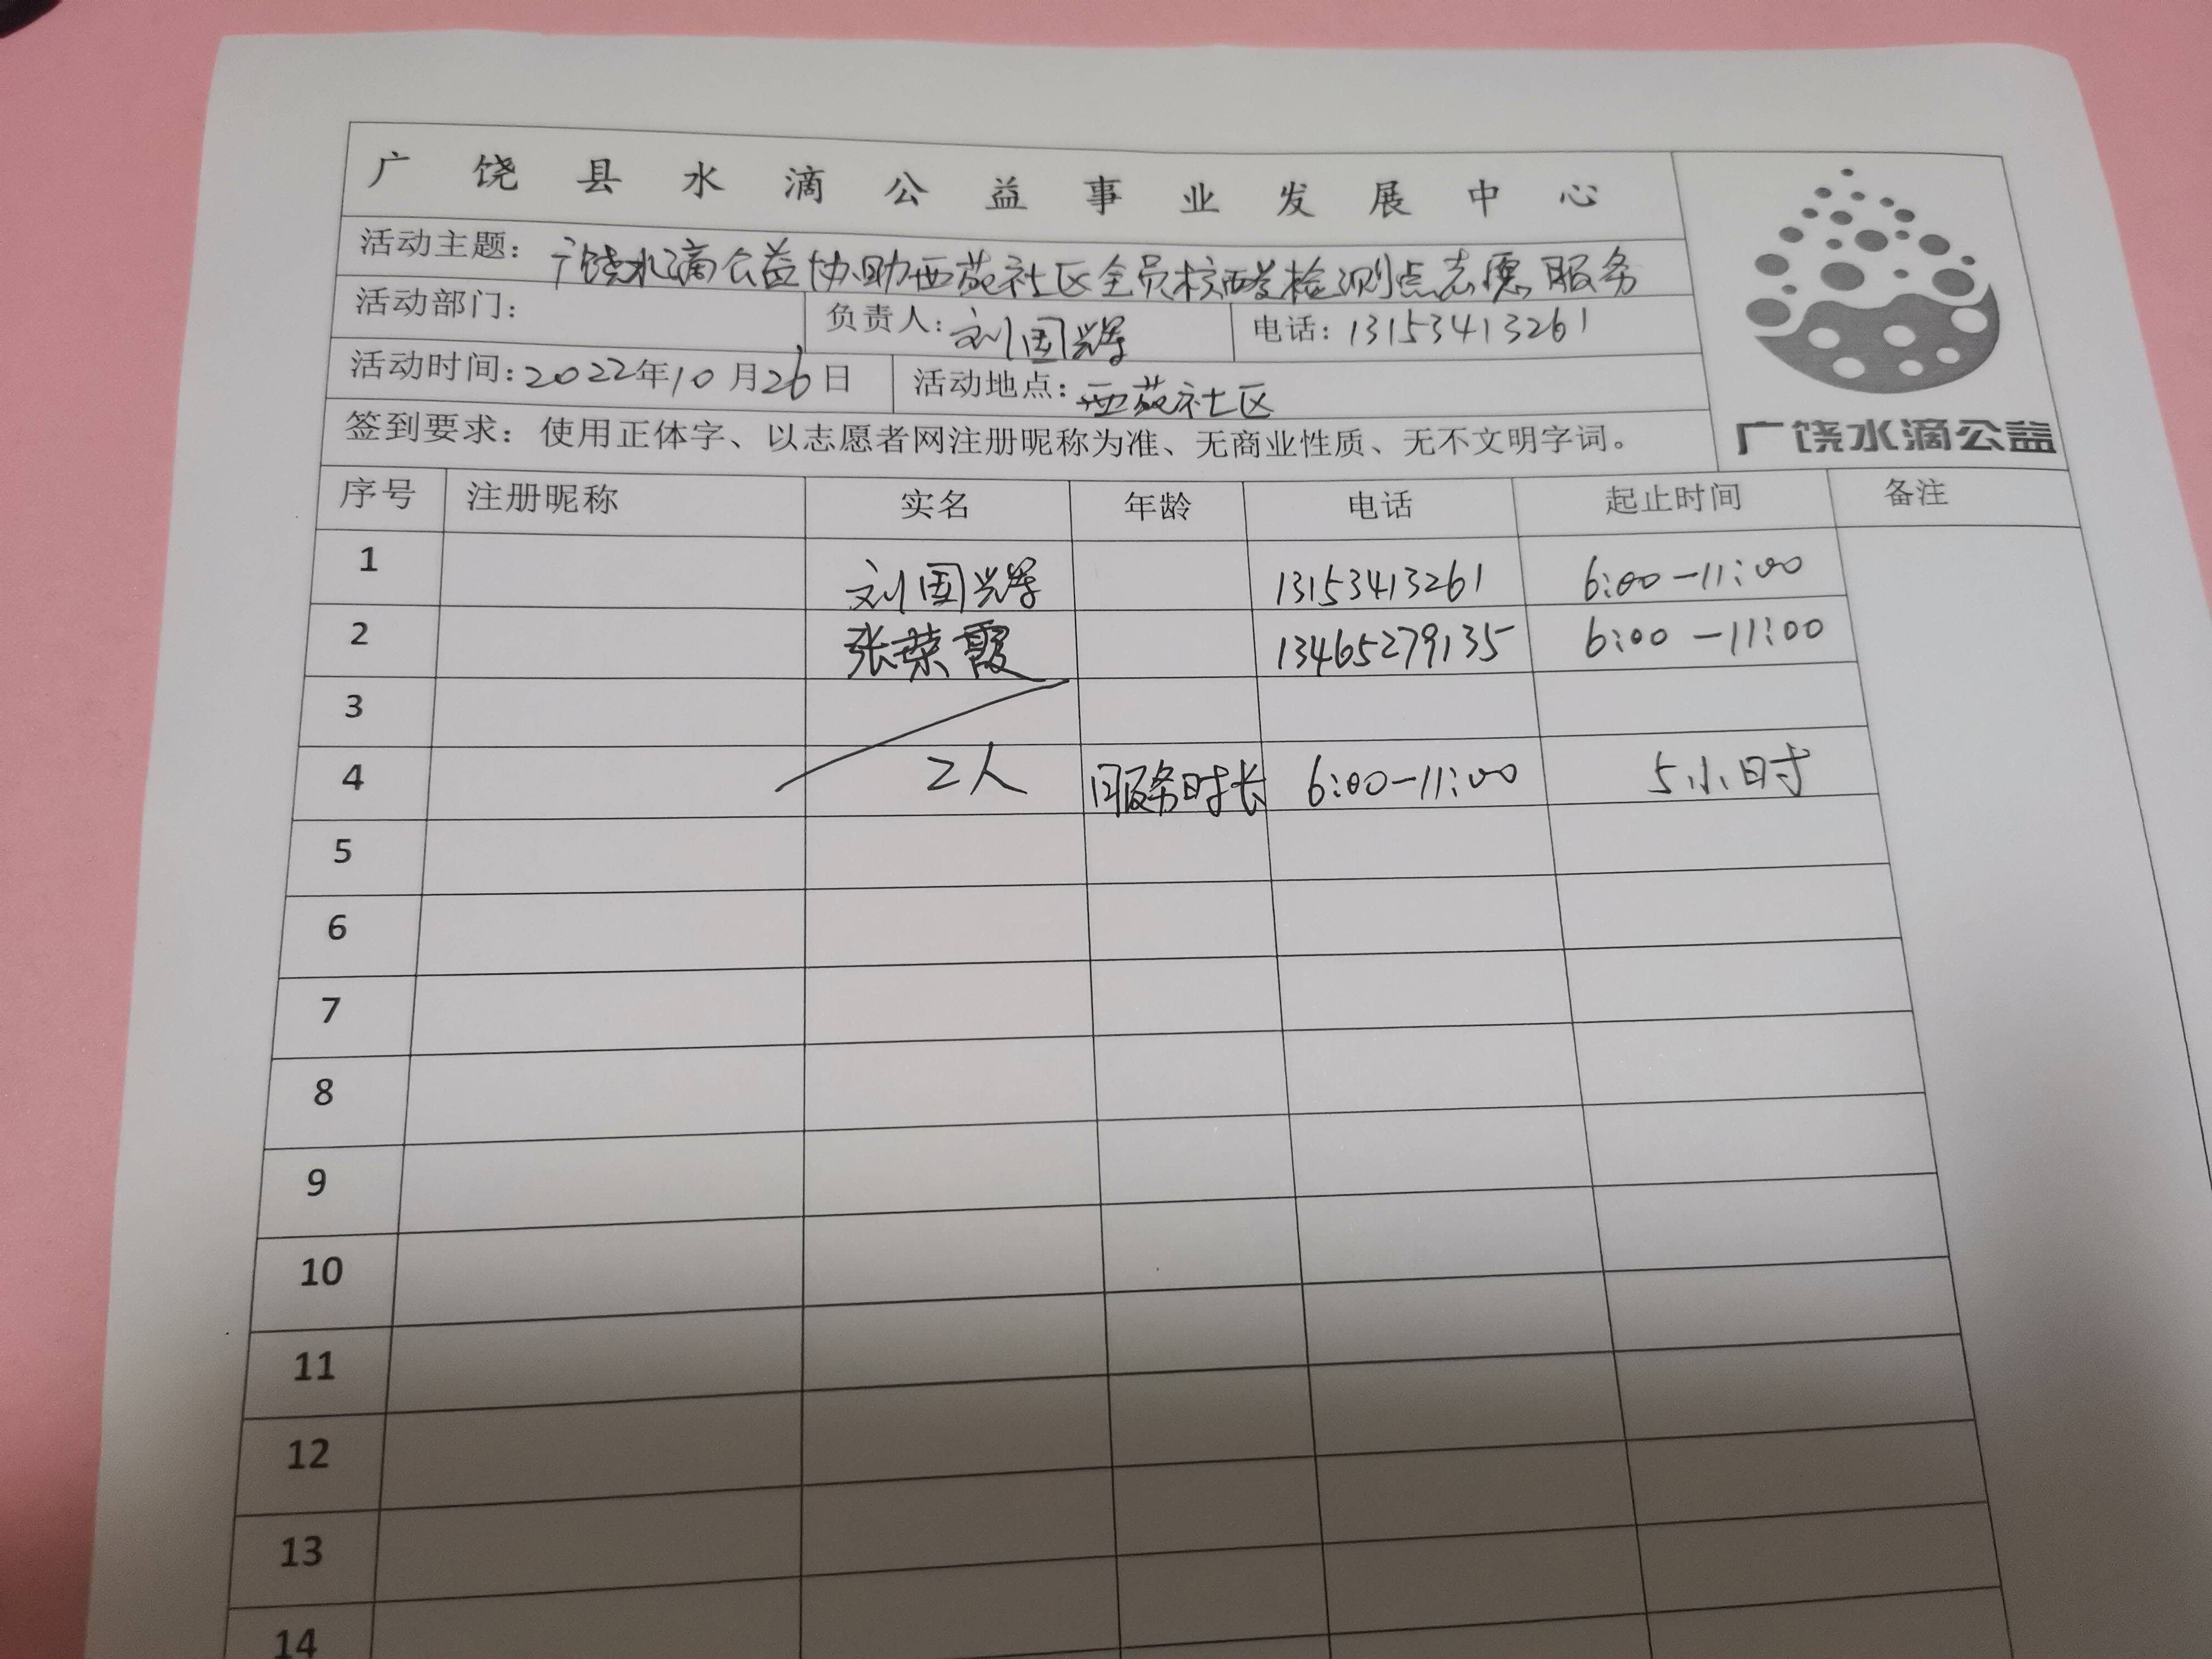 广饶县水滴公益事业发展中心
活动主题：广饶水滴公益协助西苑社区全员核酸检测点志愿服务
活动部门： 负责人：刘国辉 电话：13153413261
活动时间：2022年10月26日 活动地点：西苑社区
签到要求：使用正体字、以志愿者网注册昵称为准、无商业性质、无不文明字词。
广饶水滴公益
序号 注册昵称 实名 年龄 电话 起止时间 备注
1 刘国辉 13153413261 6:00-11:00
2 张荣霞 13465279135 6:00-11:00
3
4 2人 服务时长 6:00-11:00 5小时
5
6
7
8
9
10
11
12
13
14